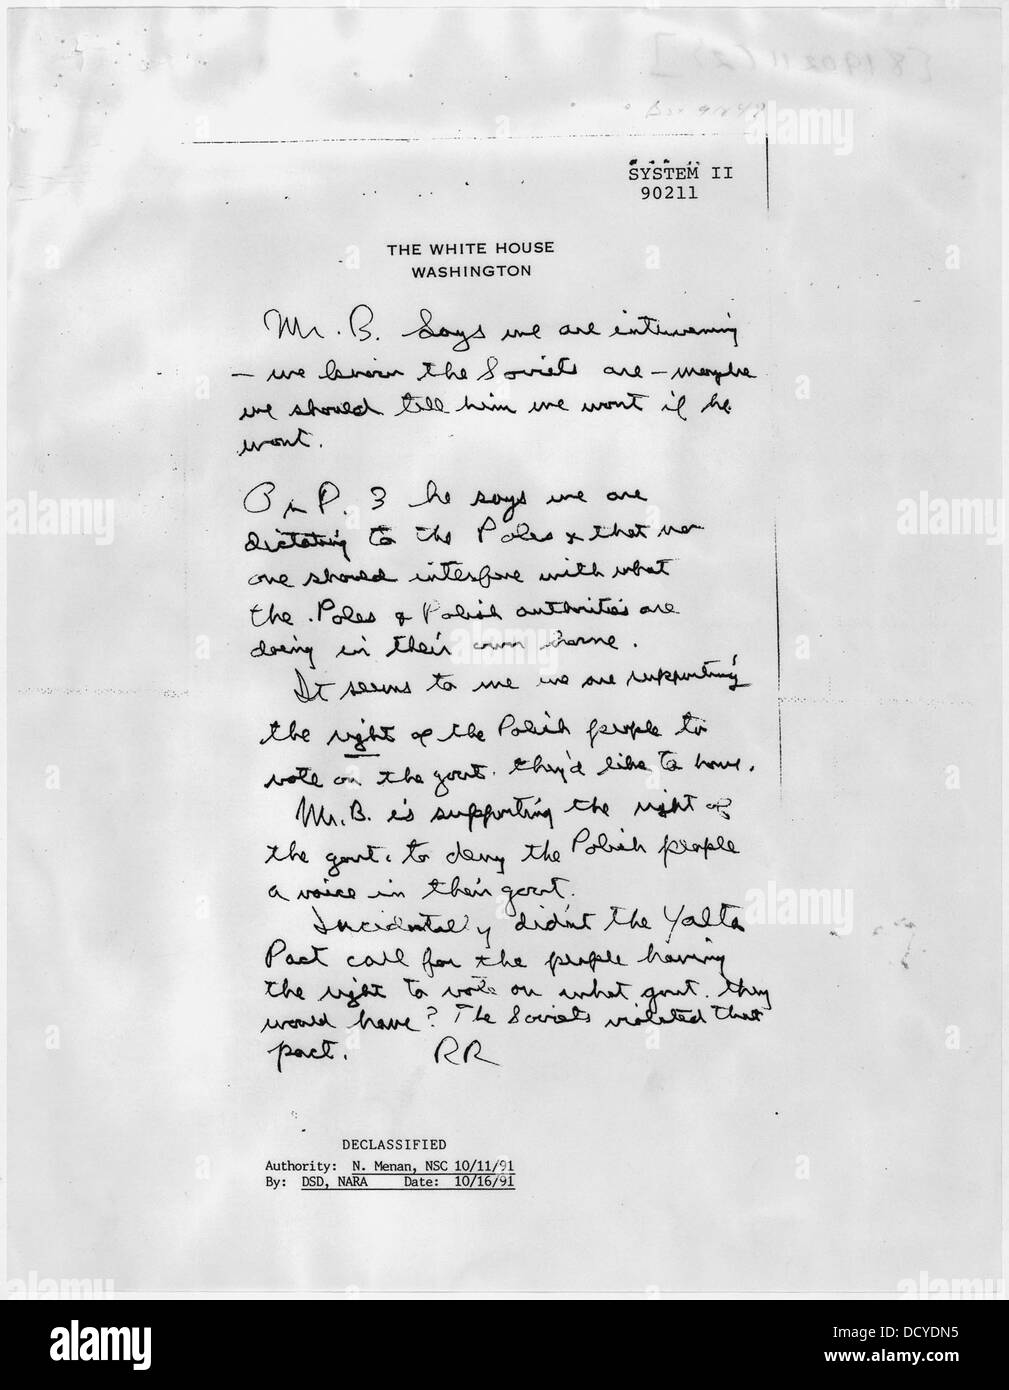 SYSTEM II
90211
THE WHITE HOUSE
WASHINGTON
Mr. B. says we are intervening
– we know the Soviets are – maybe
we should tell him we wont if he
wont.
On P. 3 he says we are
dictating to the Poles & that no
one should interfere with what
the Poles & Polish authorities are
doing in their own home.
It seems to me we are supporting
the right of the Polish people to
vote on the govt. they'd like to have.
Mr. B. is supporting the right of
the govt. to deny the Polish people
a voice in their govt.
Incidentally didn't the Yalta
Pact call for the people having
the right to vote on what govt. they
would have? The Soviets violated that
pact. RR
DECLASSIFIED
Authority: N. Menan, NSC 10/11/91
By: DSD, NARA Date: 10/16/91
alamy
Image ID: DCYDN5
www.alamy.com